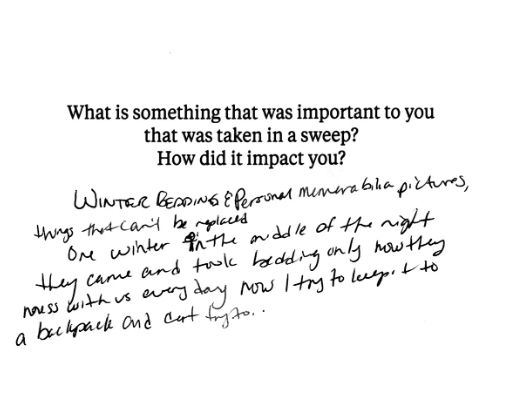 What is something that was important to you
that was taken in a sweep?
How did it impact you?
Winter Bedding & Personal memorabilia pictures,
things that can't be replaced
One winter in the middle of the night
they came and took bedding only now they
mess with us every day now I try to keep it to
a backpack and cart try to..